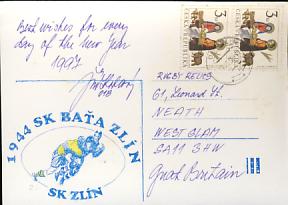 Best wishes for every
day of the New Year
1997
3
ČESKÁ
REPUBLIKA
3
ČESKÁ
REPUBLIKA
RUGBY RELICS
61, Leonard St.
NEATH
WEST GLAM
SA11 3HW
Great Britain
1944 SK BAŤA ZLÍN
SK ZLÍN